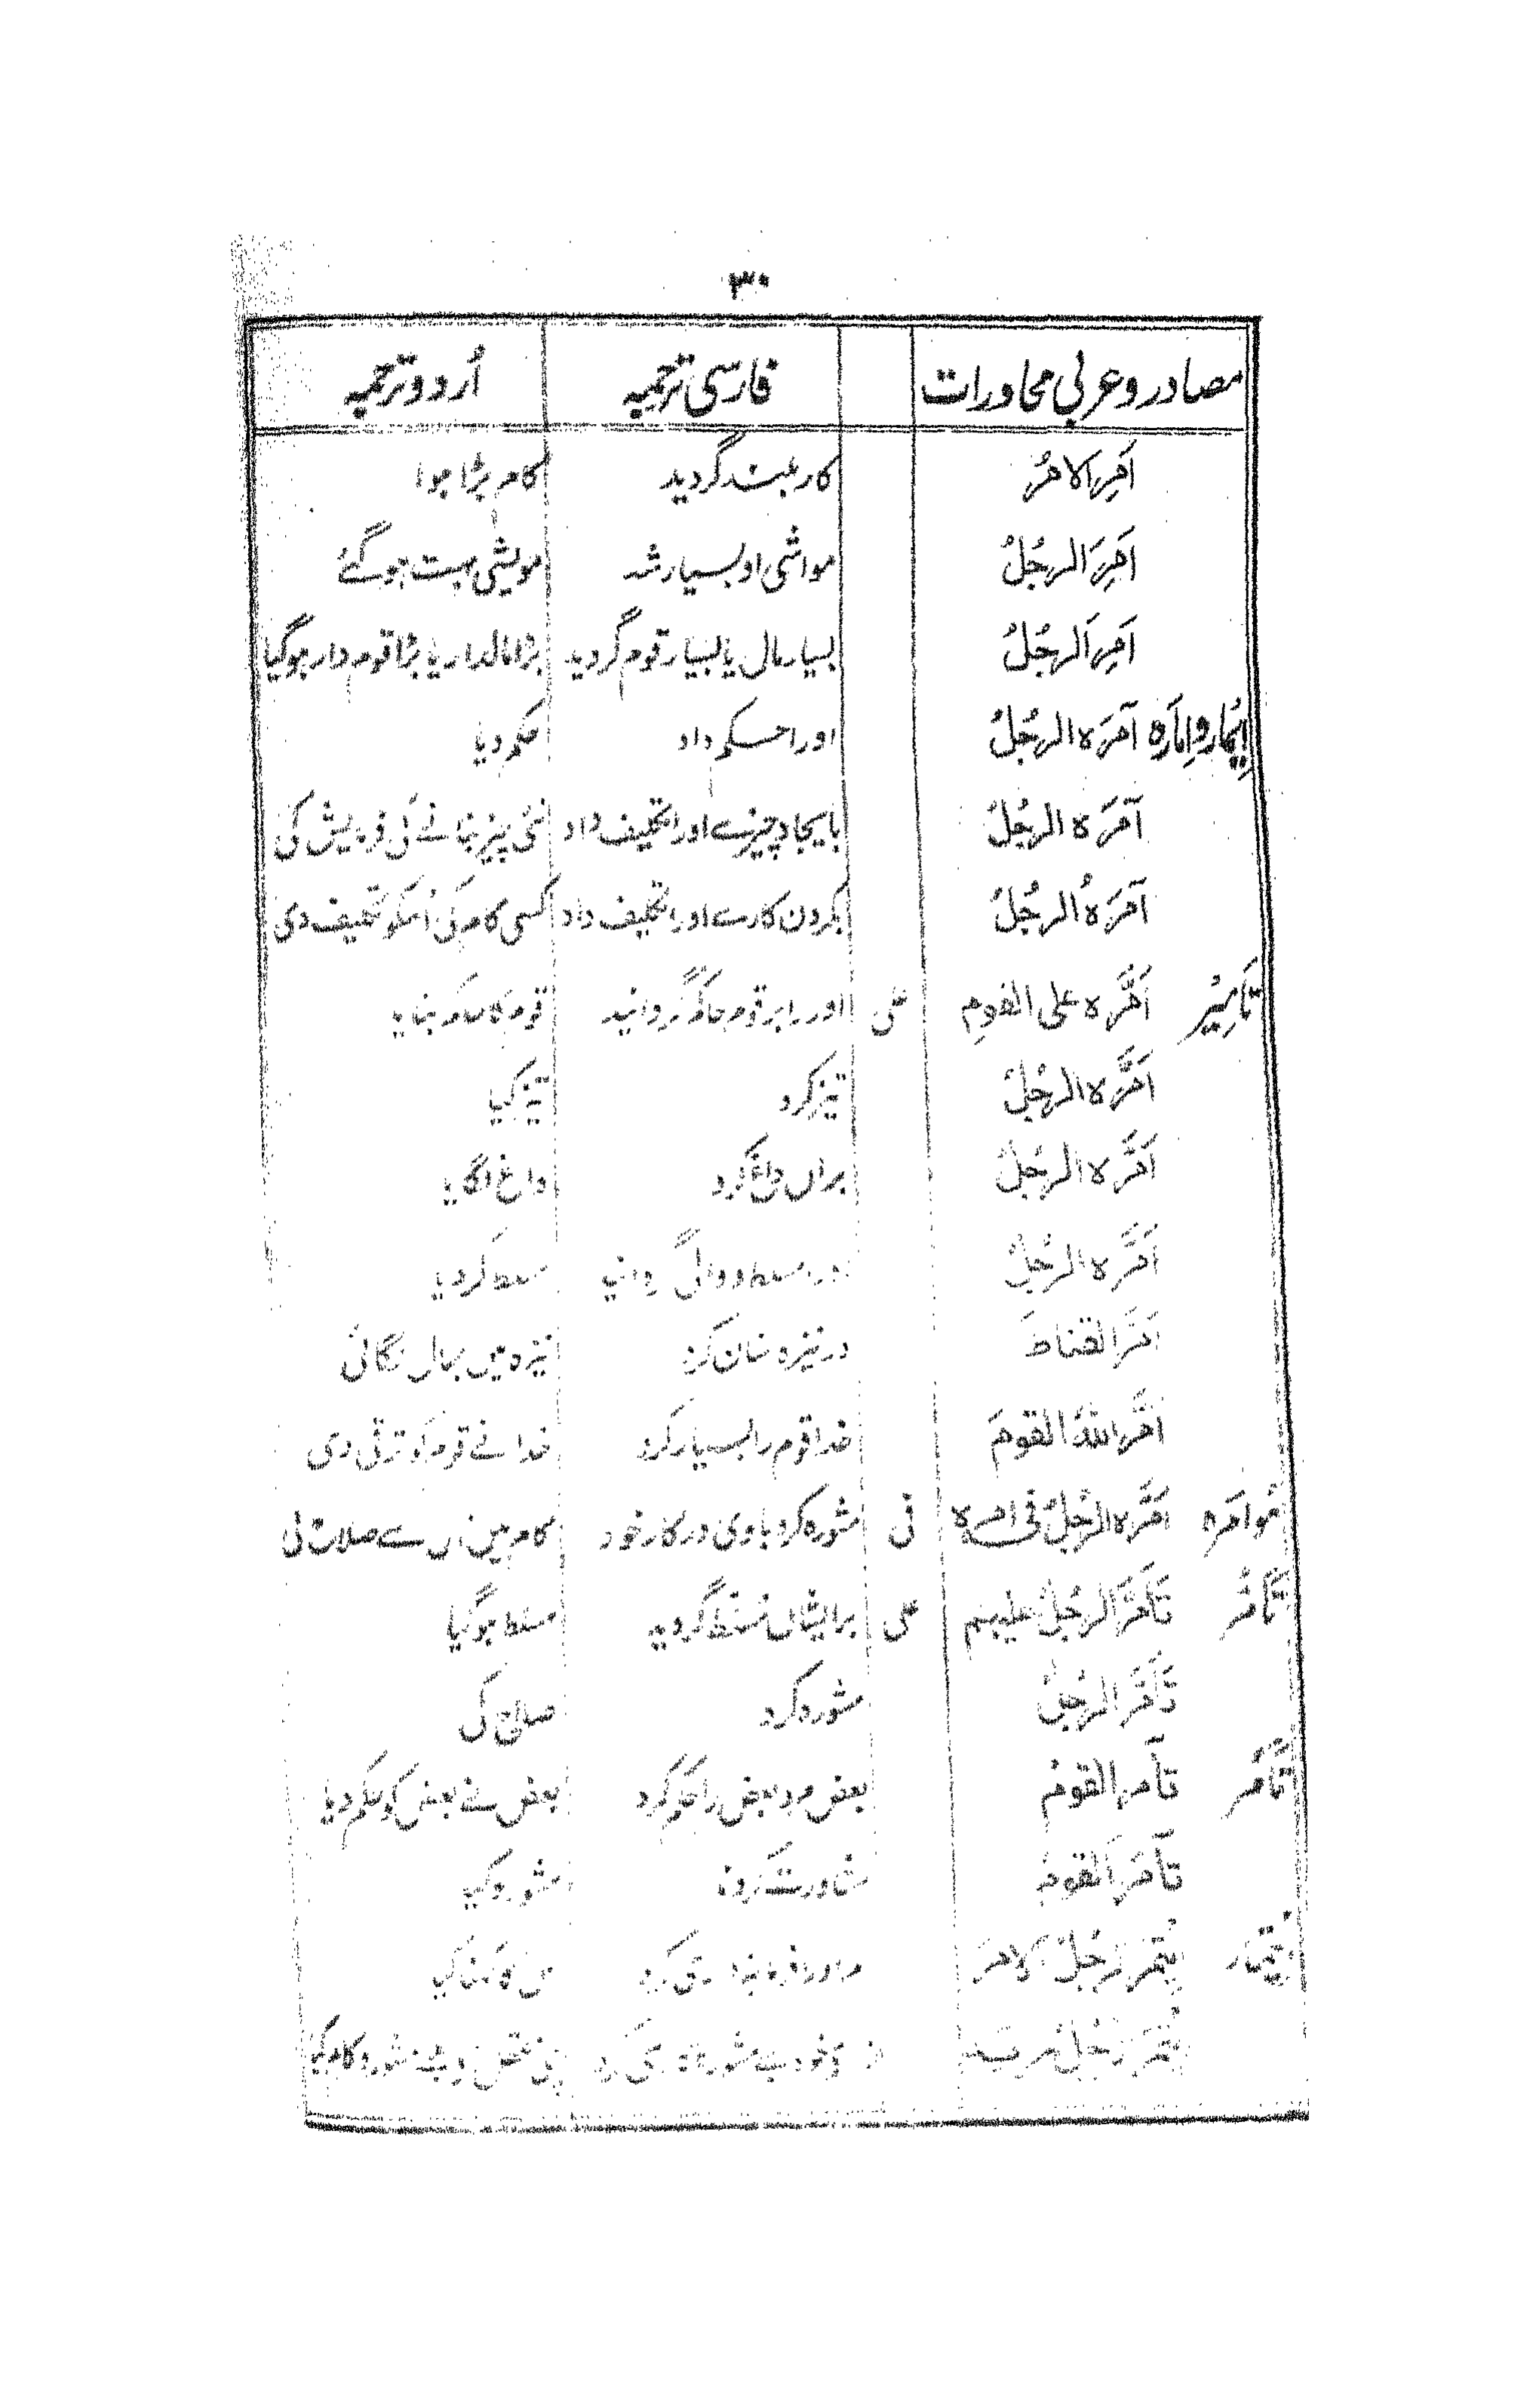 ۳۰
مصادر و عربی محاورات فارسی ترجمہ اُردو ترجمہ
اَمِرَ الامرُ کار بلند گردید کام بڑا ہوا
اَمِرَ الرجُلُ مواشی او بسیار شد مویشی بہت ہوگئے
اَمِرَ الرجُلُ بسیار مال یا بسیار قوم گردید بڑا مالدار یا بڑا قوم دار ہوگیا
اِیْمار و اِمارَہ آمَرَہ الرجُلُ اورا حکم داد حکم دیا
آمَرَہ الرجُلُ بایجاد چیزے اورا تکلیف داد نئی چیز بنانے کی فرمایش کی
آمَرَہُ الرجُلُ بکردن کارے اورا تکلیف داد کسی کام کی اُسکو تکلیف دی
تَامِیْر اَمَّرَہ علی القومِ علی اورا بر قوم حاکم گردانید قوم کا حاکم بنایا
اَمَّرَہ الرجُلُ تیز کرد تیز کیا
اَمَّرَہ الرجُلُ براں داغ کرد داغ لگایا
اَمَّرَہ الرجُلُ مسلط و والی مسلط کردیا
اَمَّرَ القناطَ در نیزہ سنان کرد نیزہ میں بھال لگائی
اَمَّرَ اللہُ القومَ خدا قوم را بسیار کرد خدا نے قوم کو ترقی دی
مُوامَرہ اَمَّرَہ الرجُلُ فی امرہ فی مشورہ کرد باوی در کار خود کام مین اس سے صلاح لی
تَأَمُّر تَأَمَّرَ الرجُلُ علیہم علی برایشاں مسلط گردید مسلط ہوگیا
تَأَمَّرَ الرجُلُ مشورہ کرد صلاح کی
تَآمُر تآمر القومُ بعض مر بعض را حکم کرد بعض نے بعض کو حکم دیا
تآمَرَ القومُ مشاورت کردند مشورہ کیا